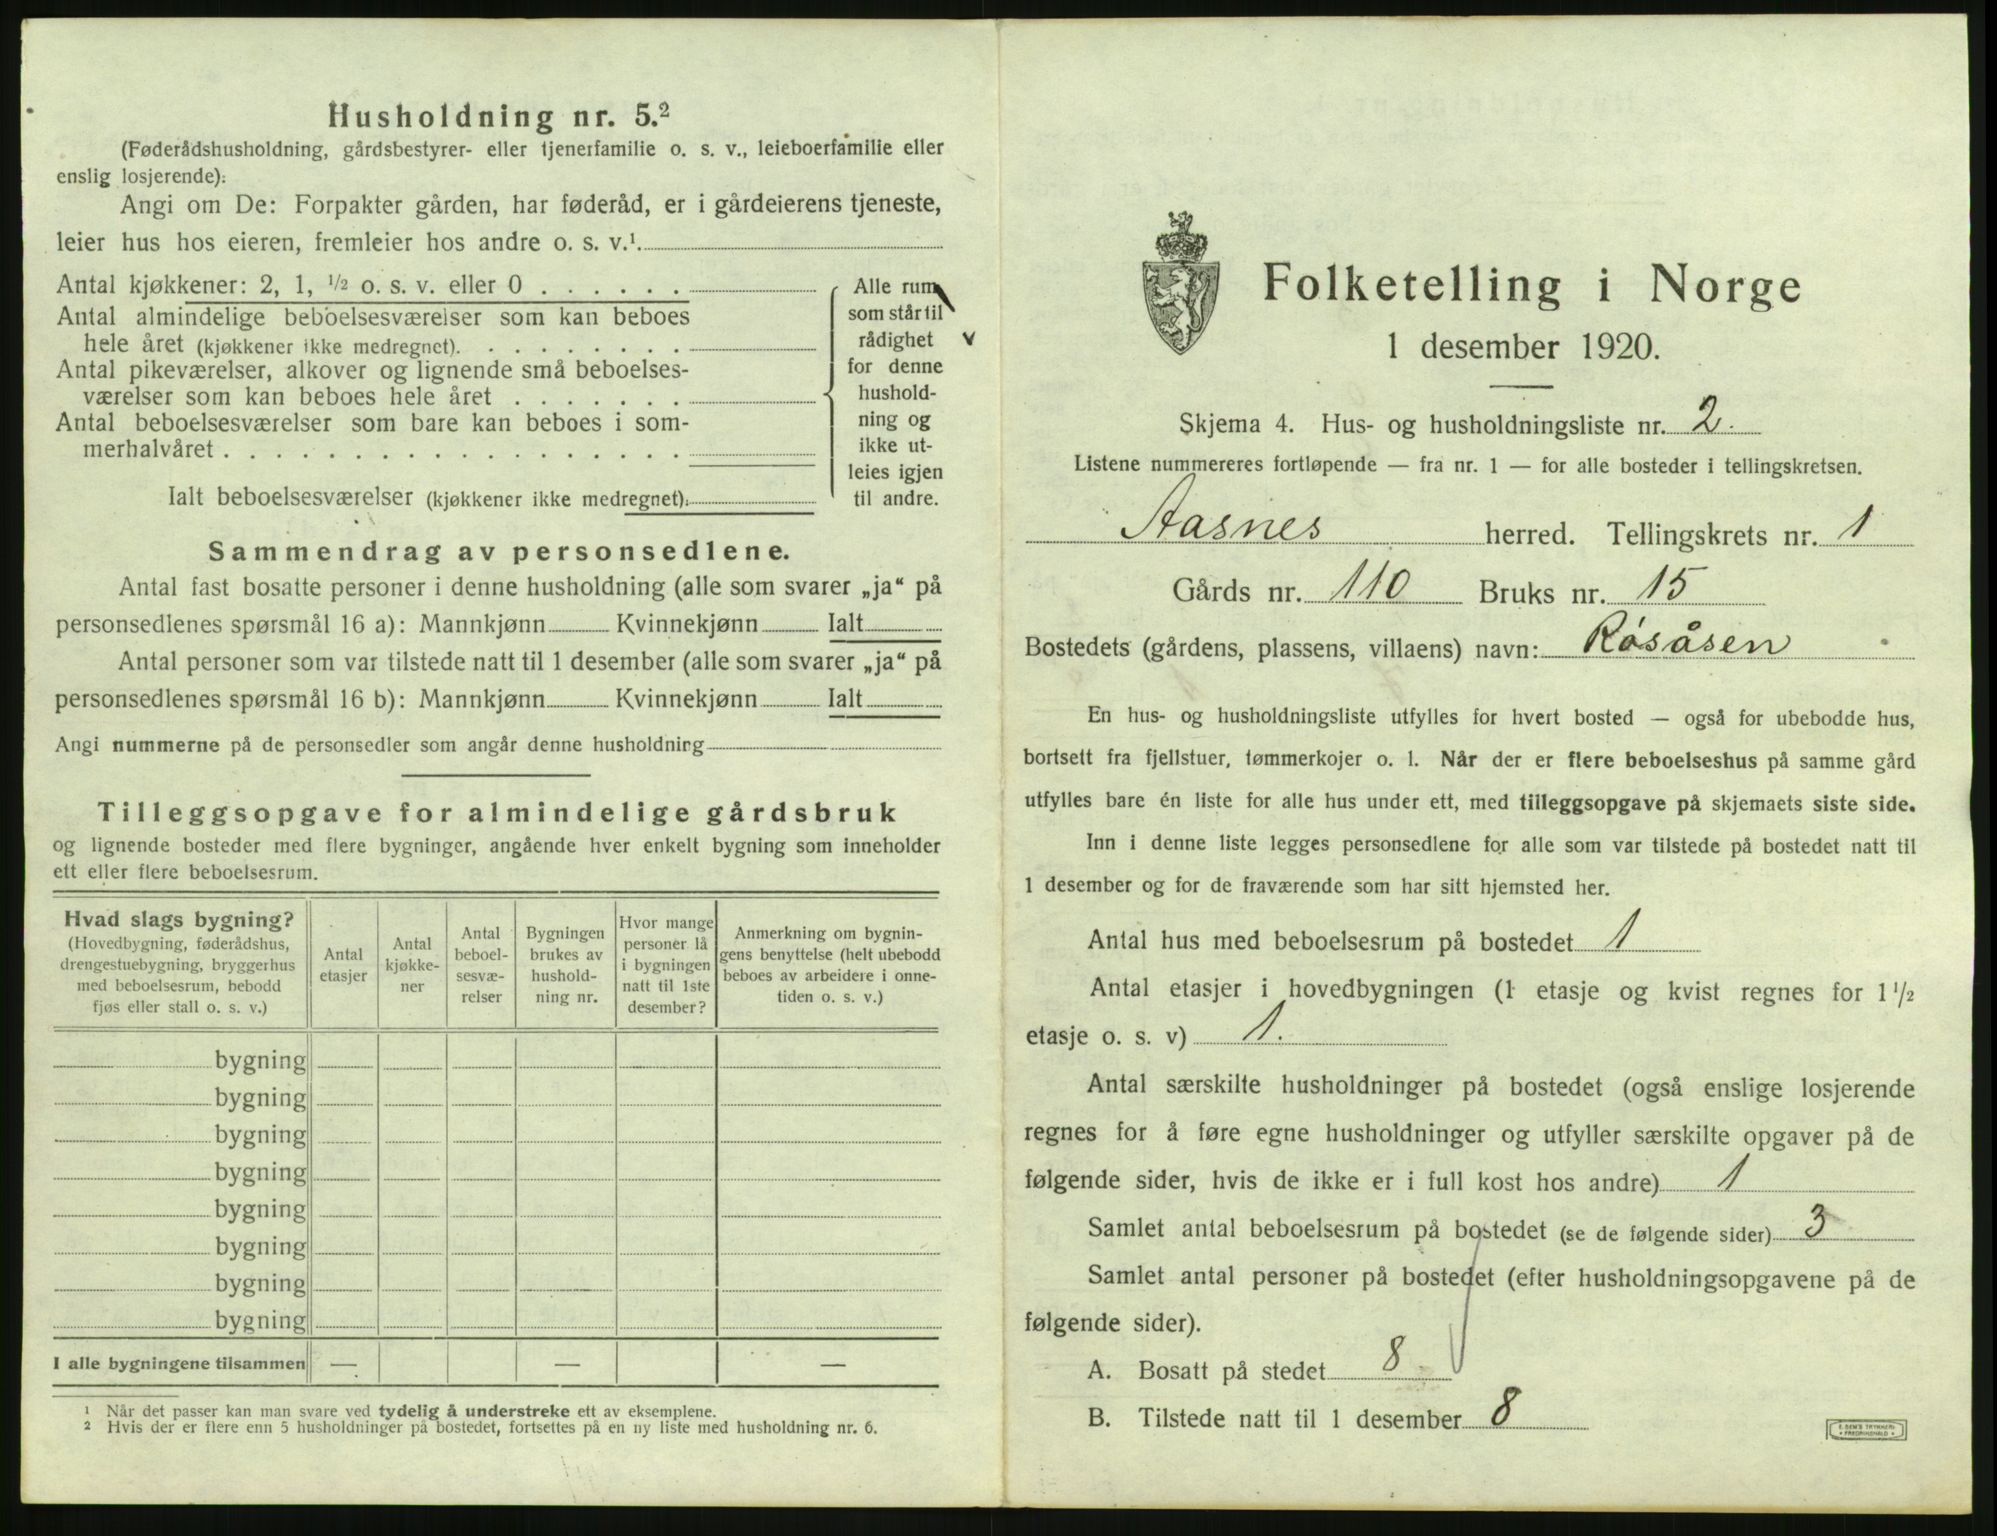 Husholdning nr. 5.²
(Føderådshusholdning, gårdsbestyrer- eller tjenerfamilie o. s. v., leieboerfamilie eller
enslig losjerende):
Angi om De: Forpakter gården, har føderåd, er i gårdeierens tjeneste,
leier hus hos eieren, fremleier hos andre o. s. v.¹.
Antal kjøkkener: 2, 1, ½ o. s. v. eller 0 . . . . . .
Antal almindelige beboelsesværelser som kan beboes
hele året (kjøkkener ikke medregnet). . . . . . . . .
Antal pikeværelser, alkover og lignende små beboelses-
værelser som kan beboes hele året . . . . . . .
Antal beboelsesværelser som bare kan beboes i som-
merhalvåret . . . . . . . . . . . . . . . . . .
Ialt beboelsesværelser (kjøkkener ikke medregnet):
Alle rum
som står til
rådighet
for denne
hushold-
ning og
ikke ut-
leies igjen
til andre.
Sammendrag av personsedlene.
Antal fast bosatte personer i denne husholdning (alle som svarer „ja“ på
personsedlenes spørsmål 16 a): Mannkjønn Kvinnekjønn Ialt
Antal personer som var tilstede natt til 1 desember (alle som svarer „ja“ på
personsedlenes spørsmål 16 b): Mannkjønn Kvinnekjønn Ialt
Angi nummerne på de personsedler som angår denne husholdning
Tilleggsopgave for almindelige gårdsbruk
og lignende bosteder med flere bygninger, angående hver enkelt bygning som inneholder
ett eller flere beboelsesrum.
Hvad slags bygning?
(Hovedbygning, føderådshus,
drengestuebygning, bryggerhus
med beboelsesrum, bebodd
fjøs eller stall o. s. v.)
Antal
etasjer
Antal
kjøkke-
ner
Antal
beboel-
sesvæ-
relser
Bygningen
brukes av
hushold-
ning nr.
Hvor mange
personer lå
i bygningen
natt til 1ste
desember?
Anmerkning om bygnin-
gens benyttelse (helt ubebodd
beboes av arbeidere i onne-
tiden o. s. v.)
bygning
bygning
bygning
bygning
bygning
bygning
bygning
bygning
I alle bygningene tilsammen — — —
¹ Når det passer kan man svare ved tydelig å understreke ett av eksemplene.
² Hvis der er flere enn 5 husholdninger på bostedet, fortsettes på en ny liste med husholdning nr. 6.
Folketelling i Norge
1 desember 1920.
Skjema 4. Hus- og husholdningsliste nr. 2.
Listene nummereres fortløpende — fra nr. 1 — for alle bosteder i tellingskretsen.
Aasnes herred. Tellingskrets nr. 1
Gårds nr. 110 Bruks nr. 15
Bostedets (gårdens, plassens, villaens) navn: Røsåsen
En hus- og husholdningsliste utfylles for hvert bosted — også for ubebodde hus,
bortsett fra fjellstuer, tømmerkojer o. l. Når der er flere beboelseshus på samme gård
utfylles bare én liste for alle hus under ett, med tilleggsopgave på skjemaets siste side.
Inn i denne liste legges personsedlene for alle som var tilstede på bostedet natt til
1 desember og for de fraværende som har sitt hjemsted her.
Antal hus med beboelsesrum på bostedet 1
Antal etasjer i hovedbygningen (1 etasje og kvist regnes for 1 ½
etasje o. s. v) 1.
Antal særskilte husholdninger på bostedet (også enslige losjerende
regnes for å føre egne husholdninger og utfyller særskilte opgaver på de
følgende sider, hvis de ikke er i full kost hos andre) 1
Samlet antal beboelsesrum på bostedet (se de følgende sider) 3
Samlet antal personer på bostedet (efter husholdningsopgavene på de
følgende sider).
A. Bosatt på stedet 8
B. Tilstede natt til 1 desember 8
E. SEM'S TRYKKERI
FREDRIKSHALD